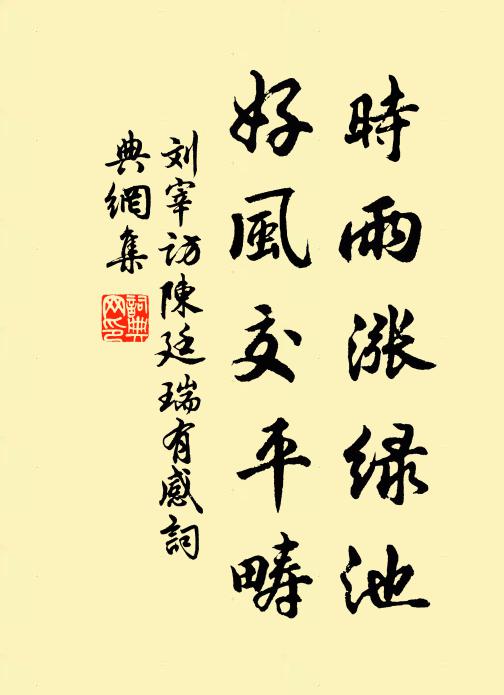 時雨漲绿池
好風交平疇
刘宰访陳廷瑞有感詞
典網集
詞典网印